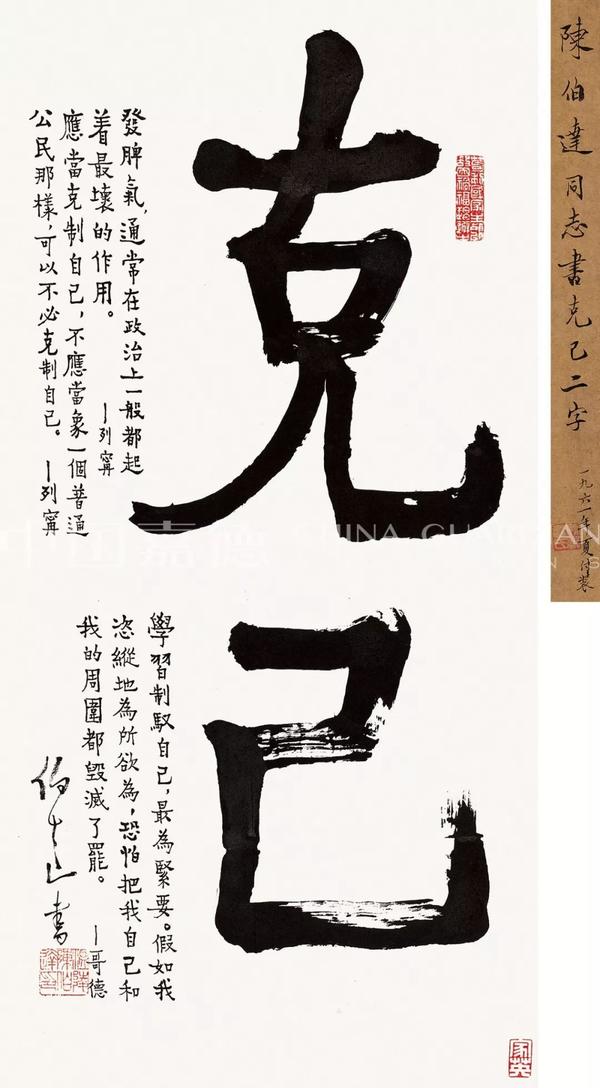 陳伯達同志書克己二字
一九六一年夏付裝
克己
發脾氣，通常在政治上一般都起
着最壞的作用。 —列寧
應當克制自己，不應當象一個普通
公民那樣，可以不必克制自己。 —列寧
學習制馭自己，最為緊要。假如我
恣縱地為所欲為，恐怕把我自己和
我的周圍都毀滅了罷。 —哥德
伯達書
家英
中国嘉德 CHINA GUARDIAN